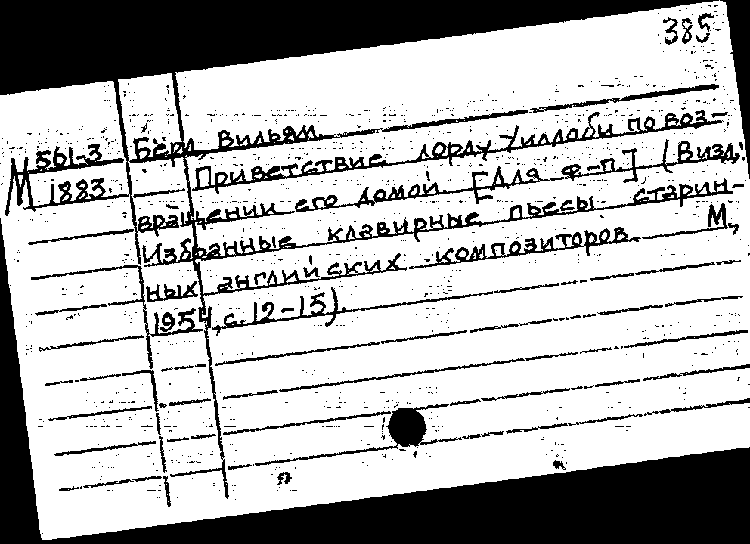 385
М 561-3 Бёрд, Вильям.
1883. Приветствие лорду Уиллоби по воз-
вращении его домой [Для ф-п.] (В изд.:
Избранные клавирные пьесы старин-
ных английских композиторов. М.,
1954, с. 12-15).